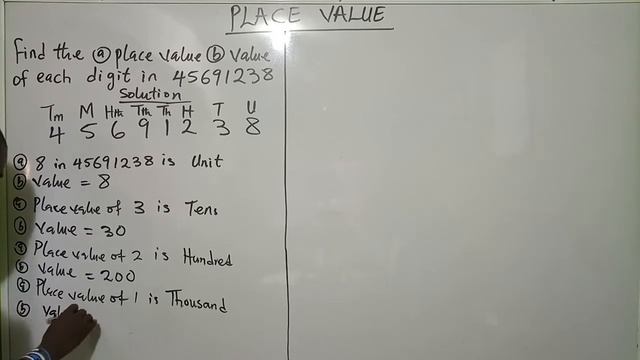 PLACE VALUE
Find the ⓐ place value ⓑ value
of each digit in 45691238
Solution
Tm M Hth Tth Th H T U
4 5 6 9 1 2 3 8
ⓐ 8 in 45691238 is Unit
ⓑ Value = 8
ⓐ Place value of 3 is Tens
ⓑ Value = 30
ⓐ Place value of 2 is Hundred
ⓑ Value = 200
ⓐ Place value of 1 is Thousand
ⓑ Val